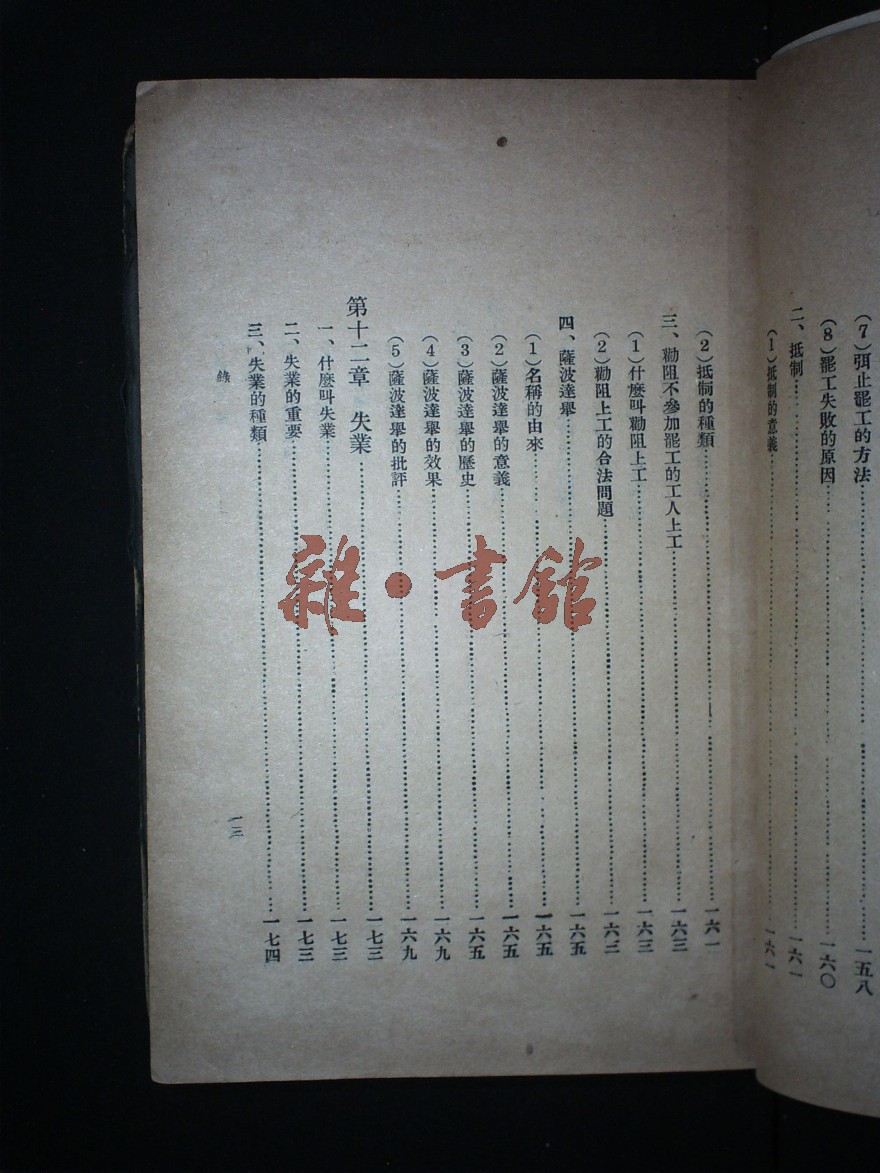 (7)弭止罷工的方法……一五八
(8)罷工失敗的原因……一六〇
二、抵制……一六一
(1)抵制的意義……一六一
(2)抵制的種類……一六一
三、勸阻不參加罷工的工人上工……一六三
(1)什麼叫勸阻上工……一六三
(2)勸阻上工的合法問題……一六二
四、薩波達舉……一六五
(1)名稱的由來……一六五
(2)薩波達舉的意義……一六五
(3)薩波達舉的歷史……一六五
(4)薩波達舉的效果……一六九
(5)薩波達舉的批評……一六九
第十二章 失業……一七三
一、什麼叫失業……一七三
二、失業的重要……一七三
三、失業的種類……一七四
錄
一三
雜·書館